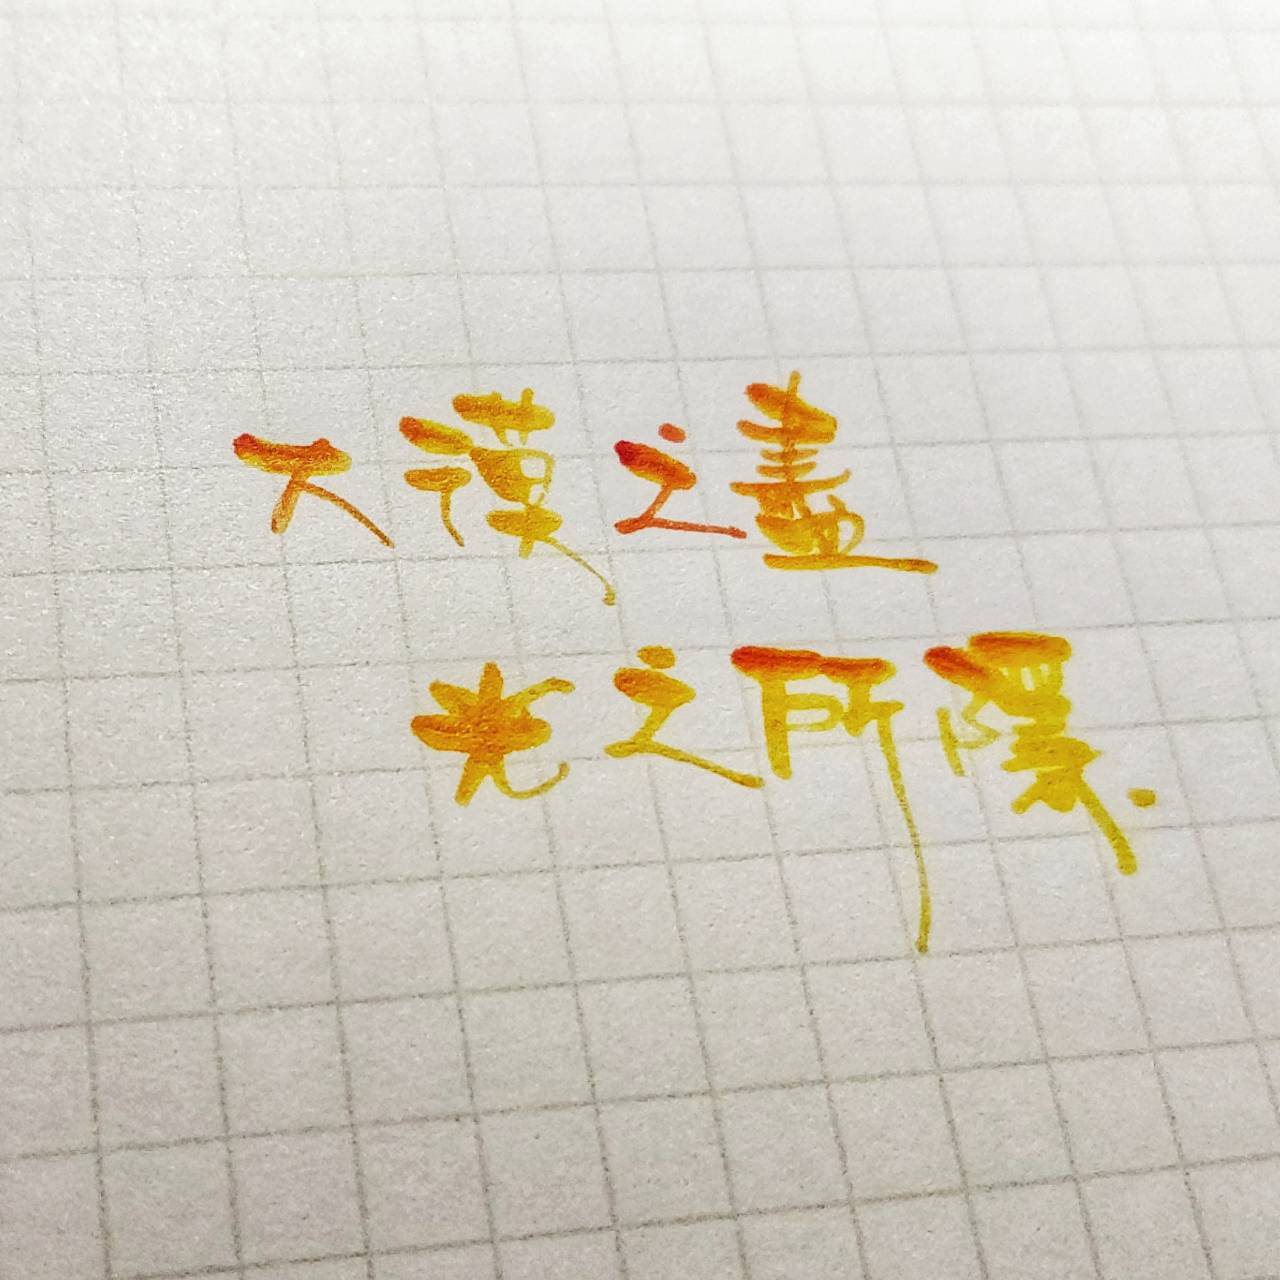 大漠之盡
光之所隱.